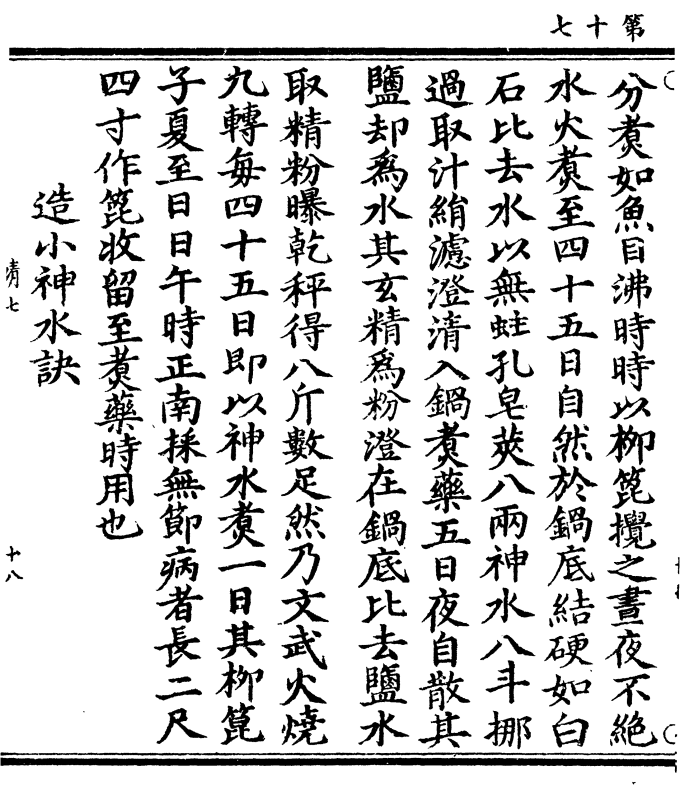 第十七
八分煑如魚目沸時時以柳箆攪之晝夜不絶
水火煑至四十五日自然於鍋底結硬如白
石比去水以無蛀孔皂莢八兩神水八斗挪
過取汁絹濾澄清入鍋煑藥五日夜自散其
鹽却爲水其玄精爲粉澄在鍋底比去鹽水
取精粉曝乾秤得八斤數足然乃文武火燒
九轉每四十五日即以神水煑一日其柳箆
子夏至日日午時正南採無節病者長二尺
四寸作箆收留至煑藥時用也
造小神水訣
清七
十八